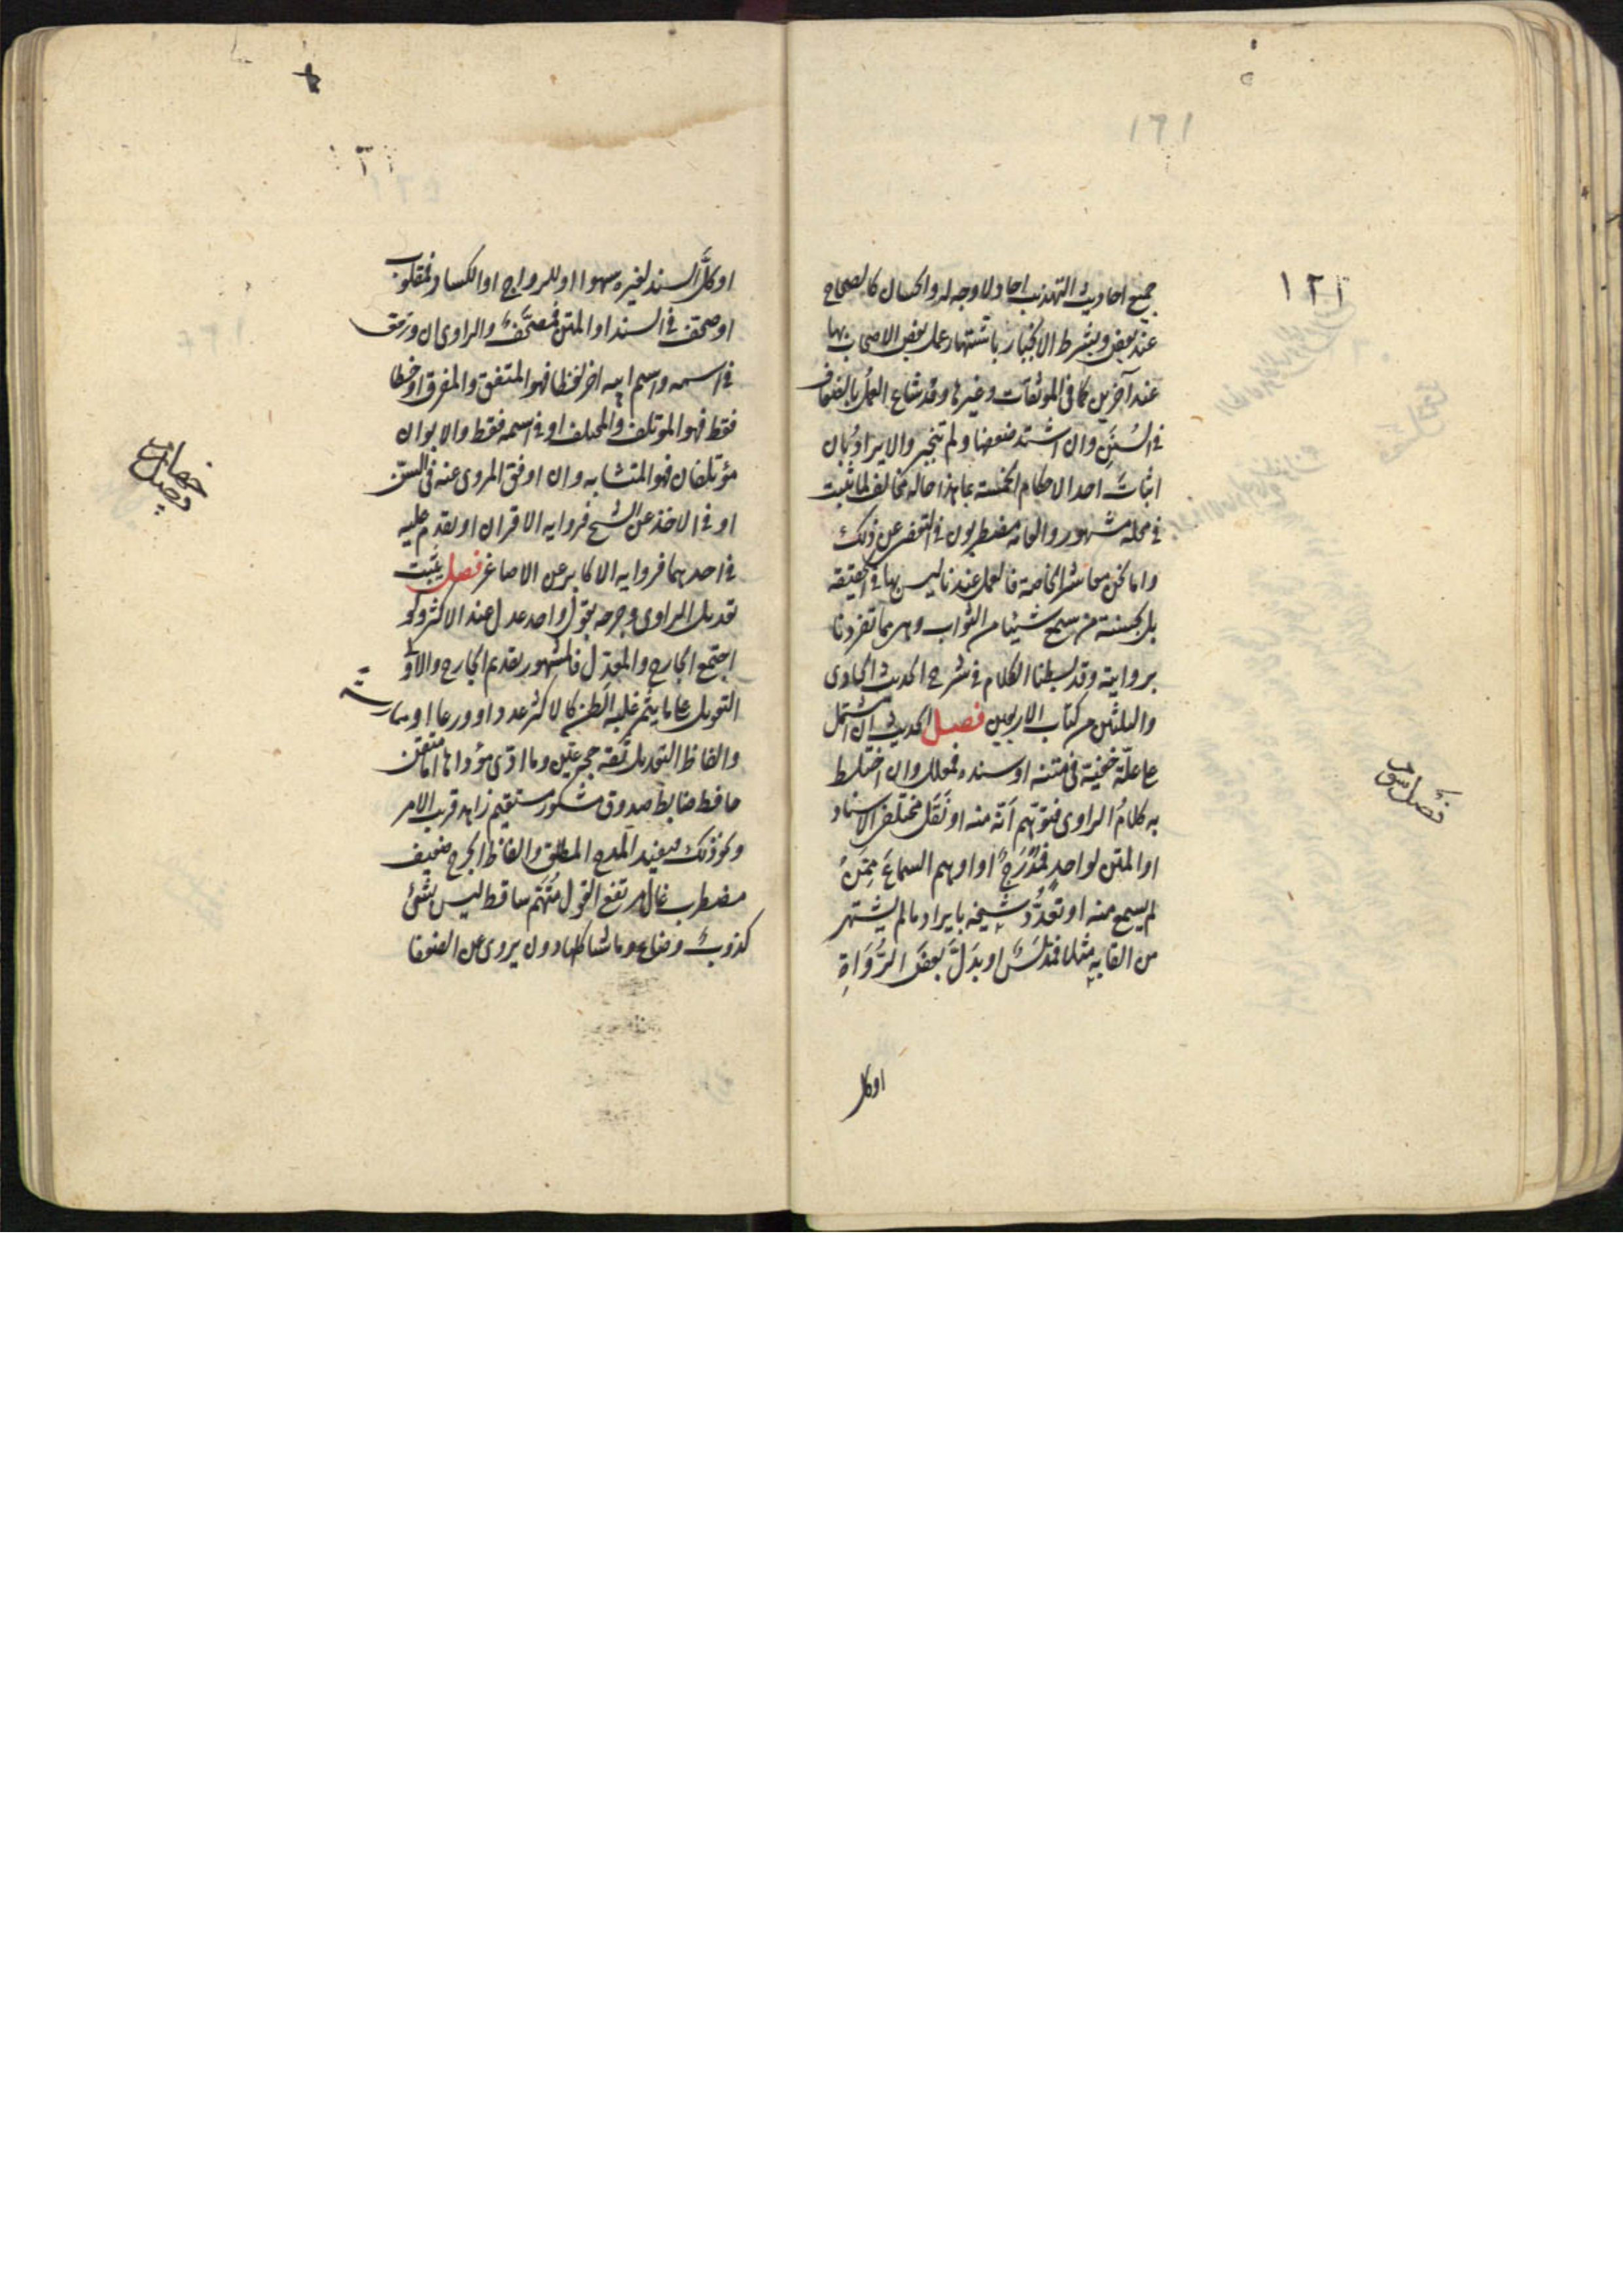 ١٢١
جميع احاديث التهذيب احاد لا وجه له والحسان كالصحاح
عند بعض وبشرط الانجبار باشتهار عمل بعض الاصحاب بها
عند آخرين كما فى الموثقات وغيرها وقد شاع العمل بالضعاف
فى السُنَن وان اشتد ضعفها ولم تنجبر والايراد بان
اثبات احد الاحكام الخمسة بما هذا حاله مخالف لما ثبت
فى محله مشهور والعامه مضطربون فى التفصى عن ذلك
واما نحن معاشر الخاصة فالعمل عندنا ليس بها فى الحقيقه
بل بحسنة من سمع شيئا من الثواب وهى مما تفردنا
بروايته وقد بسطنا الكلام فى شرح الحديث الحادى
والثلثين من كتاب الاربعين فصل الحديث ان اشتمل
على علّة خفيّة فى متنه او سنده فمعلل وان اختلط
به كلامُ الراوى فتوهّم انّه منه او نَقَل مختلفى الاسناد
او المتن لواحدٍ فمُدْرَجٌ او اوهم السماعَ ممّن
لم يسمع منه او تعدّد شيخه بايراد ما لم يشتهر
من القابه مثلا فمدلّسٌ او بدّل بعضَ الرُّوَاةِ
اوكل
فصل سوم
١٢١
اوكلَّ السند لغيره سهوا او للرواج او الكساد فمقلوب
او صحّف فى السند او المتن فمصحَّفٌ والراوى ان وافق
فى اسمه واسم ابيه اخر لفظا فهو المتفق والمفرق او خطا
فقط فهو المؤتلف والمختلف او فى اسمه فقط والابوان
مؤتلفان فهو المتشابه وان اوفق المروى عنه فى السنّ
او فى الاخذ عن الشيخ فروايه الاقران او تقدم عليه
فى احدهما فروايه الاكابر عن الاصاغر فصل يثبت
تعديل الراوى وجرحه بقول واحد عدل عند الاكثر ولو
اجتمع الجارح والمعدِّل فالمشهور تقديم الجارح والاولى
التعويل على ما يثمر غلبة الظن كالاكثر عددا وورعا او ممارسة
والفاظ التعديل ثقه حجه عين وما ادى مؤداها اما متقن
حافظ ضابط صدوق مشكور مستقيم زاهد قريب الامر
ونحو ذلك فيفيد المدح المطلق والفاظ الجرح ضعيف
مضطرب غال مرتفع القول مُتّهم ساقط ليس بشئ
كذوبٌ وضاع وما شاكلها دون يروى عن الضعفا
فصل چهارم